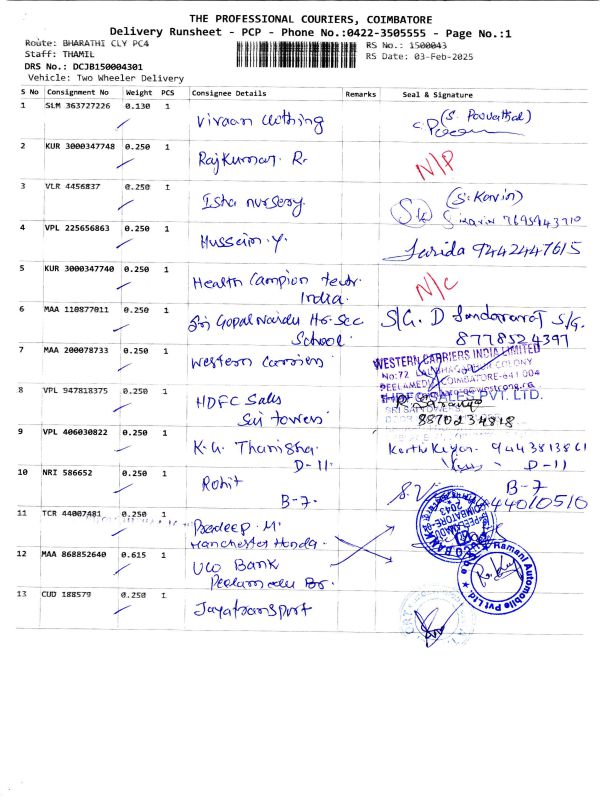 THE PROFESSIONAL COURIERS, COIMBATORE
Delivery Runsheet - PCP - Phone No.:0422-3505555 - Page No.:1
Route: BHARATHI CLY PC4
RS No.: 1500043
Staff: THAMIL
RS Date: 03-Feb-2025
DRS No.: DCJB150004301
Vehicle: Two Wheeler Delivery
S No Consignment No Weight PCS Consignee Details Remarks Seal & Signature
1 SLM 363727226 0.130 1 Vivaan Clothing (S. Poovathal)
2 KUR 3000347748 0.250 1 Rajkumar. R. N/P
3 VLR 4456837 0.250 1 Isha nursery. (S. Kavin)
7695943710
4 VPL 225656863 0.250 1 Hussain. y. Farida 9442447615
5 KUR 3000347740 0.250 1 Health Campion
India. N/C
6 MAA 110877011 0.250 1 Sri Gopal Naidu Hr. Sec S/G. D S/G.
School. 8778524397
7 MAA 200078733 0.250 1 Western Carriers WESTERN CARRIERS INDIA LIMITED
No:72
PEELAMEDU COIMBATORE-641 004
8 VPL 947818375 0.250 1 HDFC Sales HDFC SALES PVT. LTD.
Sri towers 8870234818
9 VPL 406030822 0.250 1 K. G. Thanisha. 9443813861
D-11. D-11
10 NRI 586652 0.250 1 Rohit B-7
B-7. S.V
11 TCR 44007481 0.250 1 Pradeep. M.
Manchester Honda.
12 MAA 868852640 0.615 1 UCO Bank
Peelamedu Br. Ramani Automobile Pvt Ltd.
13 CUD 188579 0.250 1 Jayatransport